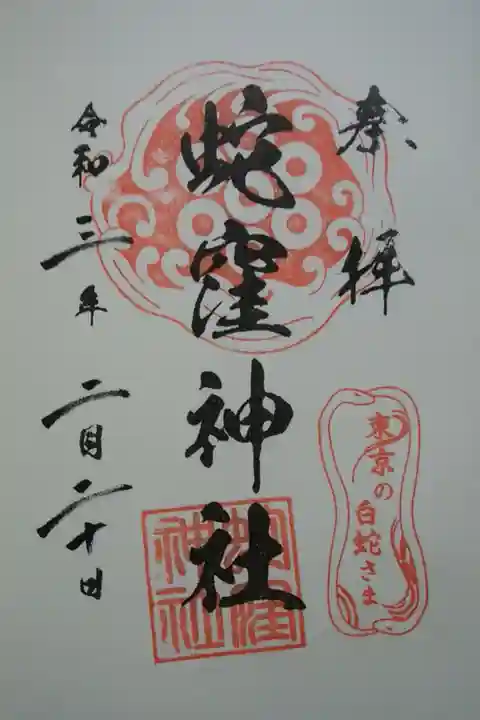 奉拝
蛇窪神社
令和三年二月二十日
東京の白蛇さま
蛇窪神社